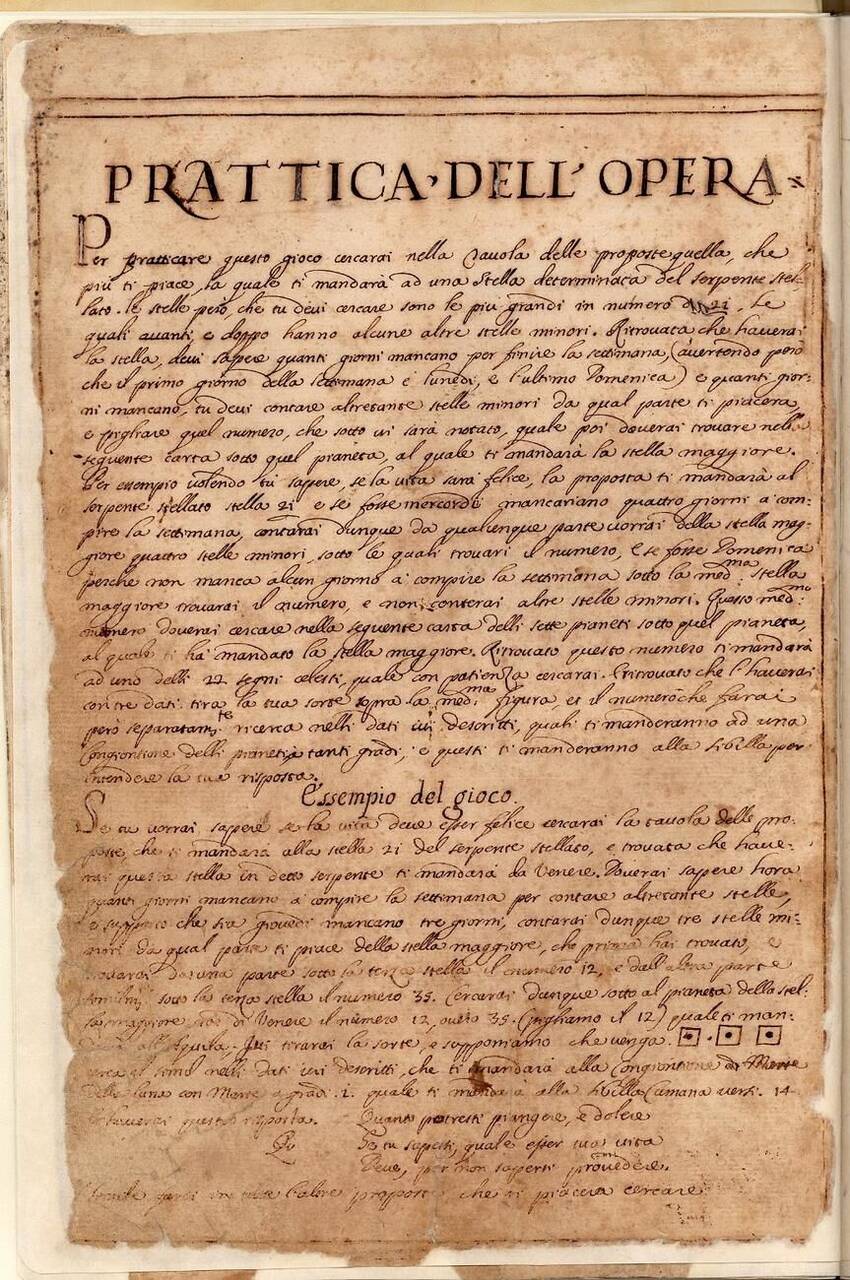 PRATTICA DELL' OPERA
Per pratticare questo gioco cercarai nella Tavola delle proposte quella, che
più ti piace, la quale ti mandarà ad una Stella determinata del serpente stel-
lato. le stelle però, che tu devi cercare sono le più grandi in numero di 21. Le
quali avanti, e doppo hanno alcune altre stelle minori. Ritrovata che haverai
la stella, devi sapere quanti giorni mancano per finire la settimana, (avertendo però
che il primo giorno della settimana è lunedi, e l'ultimo Domenica) e quanti gior-
ni mancano, tu devi contare altretante stelle minori da qual parte ti piacerà,
e pigliare quel numero, che sotto vi sarà notato, quale poi doverai trovare nella
seguente carta sotto quel pianeta, al quale ti mandarà la stella maggiore.
Per essempio volendo tu sapere, se la vita sarà felice, la proposta ti mandarà al
serpente stellato stella 21 e se fosse mercordi mancariano quattro giorni a com-
pire la settimana, contarai dunque da qualunque parte vorrai della stella mag-
giore quattro stelle minori, sotto le quali trovari il numero, E se fosse Domenica
perche non manca alcun giorno à compire la settimana sotto la med:ma stella
maggiore trovarai il numero, e non conterai altre stelle minori. Questo med:mo
numero doverai cercare nella seguente carta delli sette pianeti sotto quel pianeta,
al quale ti hà mandato la stella maggiore. Ritrovato questo numero ti mandarà
ad uno delli 22 segni celesti, quale con patienza cercarai. E ritrovato che l'haverai
con tre dati tira la tua sorte sopra la med:ma figura, et il numero che farai
però separatam:te ricerca nelli dati ivi descritti, quali ti manderanno ad una
Congiontione delli pianeti à tanti gradi, e questi ti manderanno alla sibilla per
intendere la tua risposta.
Essempio del gioco.
Se tu vorrai sapere se la vita deve esser felice cercarai la tavola delle pro-
poste, che ti mandarà alla stella 21 del serpente stellato, e trovata che have-
rai questa stella in detto serpente ti mandarà da Venere. Doverai sapere hora
quanti giorni mancano à compire la settimana per contare altretante stelle,
e supposto che sia giovedi mancano tre giorni, contarai dunque tre stelle mi-
nori da qual parte ti piace della stella maggiore, che prima hai trovato, e
trovarai da una parte sotto la terza stella il numero 12, e dall'altra parte
sotto la terza stella il numero 35. Cercarai dunque sotto al pianeta della stel-
la maggiore di Venere il numero 12, overo 35. (pigliamo il 12) quale ti man-
darà all'Aquila. Qui tirarai la sorte, e supponiamo che venga. ⚀ . ⚀ ⚀
cerca nelli dati ivi descritti, che ti mandarà alla Congiontione di Marte
della luna con Marte a gradi .1. quale ti mandarà alla sibilla Cumana versi. 14
haverai questa risposta. Quanto potresti piangere, e dolere
Se tu sapesti, quale esser tua vita
Deve, per non saperti provedere.
in tutte l'altre proposte che ti piacerà cercare